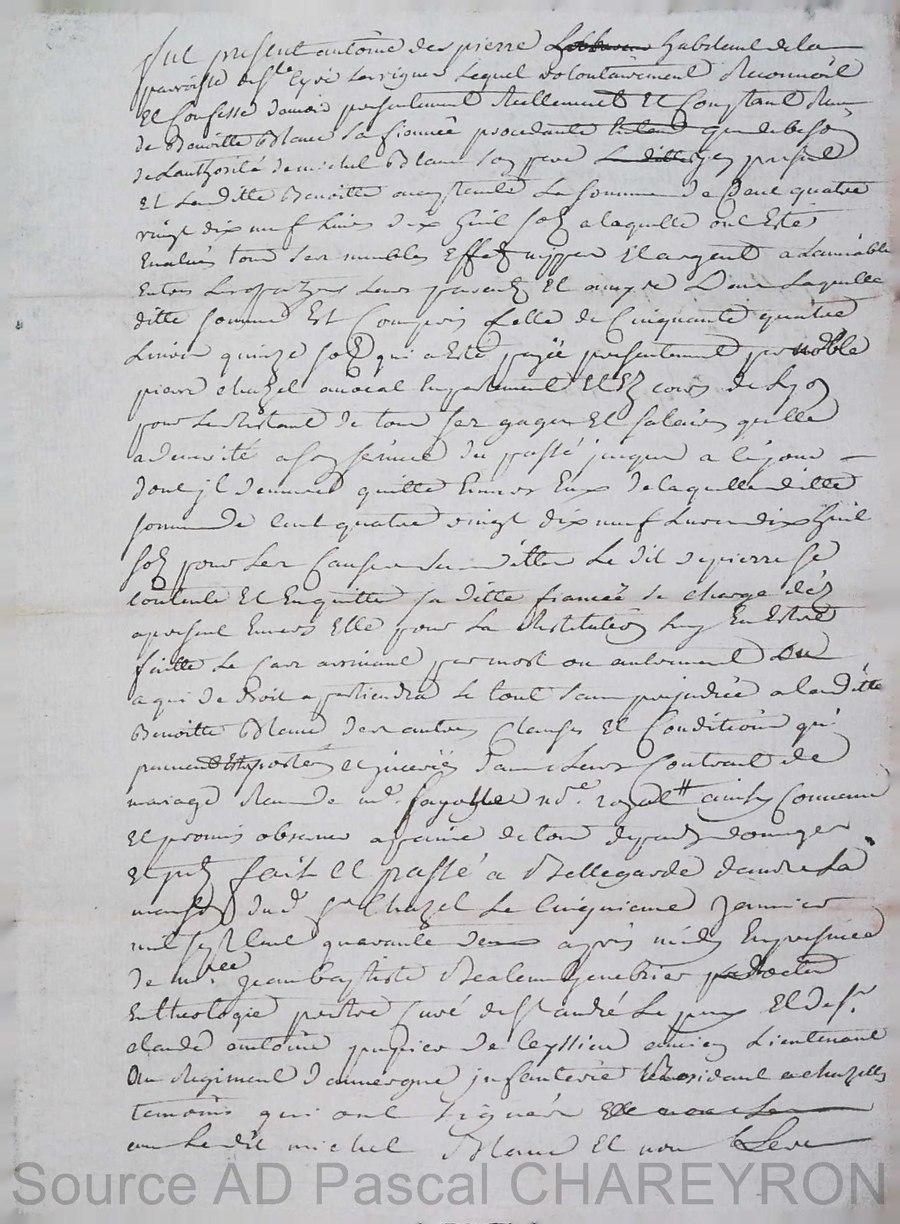 fut present antoine depierre habitant de la
paroisse de Ste Cyr Les vignes Lequel volontairement Reconnoit
Et Confesse d'avoir presentement Reellement Et Comptant Reçu
de Benoitte Blanc sa fiancée procedante que de besoin
de Lauthorité de michel Blanc son pere present
Et Laditte Benoitte acceptante La somme de Cent quatre
vingt dix neuf Livres dix huit sols a laquelle ont Esté
Evalués tous ses meubles Effets nippes Et argent a Lamiable
Entre Les parties Leurs parents Et amys Dans Laquelle
ditte somme Est Compris Celle de Cinquante quatre
Livres quinze sols qui a Esté payée presentement par noble
pierre chazel avocat En parlement Et Ez cours de Lyon
pour Le Restant de tous ses gages Et salaires quelle
a merité a son service du passé jusques a ce jour
dont il demeure quitte Envers Eux de laquelle ditte
somme de Cent quatre vingt dix neuf Livres dix huit
sols pour Les Causes susdittes Le dit depierre se
contente Et En quitte sa ditte fiancée se charge dés
a present Envers Elle pour La Restitution luy En Estre
faitte Le Cas arrivant par mort ou autrement ou
a qui de droit appartiendra Le tout sans prejudice a laditte
Benoitte Blanc des autres Clauses Et Conditions qui
peuvent Estre portées et inserées dans Leur Contract de
mariage Reçu de me. fayolle nore. royal ainsy Convenu
Et promis observer a peine de tous depends domages
Et fait Et passé a Bellegarde dans La
maison dud. sr Chazel Le Cinquieme Janvier
mil sept Cent quarante deux après midy En presence
de mre. Jean baptiste docteur
En theologie prêtre Curé de st andré Le puy Et de sr.
claude antoine punier de ancien Lieutenant
Au Regiment dauvergne infanterie Residant a chazelles
temoins qui ont signés
avec Ledit michel Blanc Et non Les
Source AD Pascal CHAREYRON